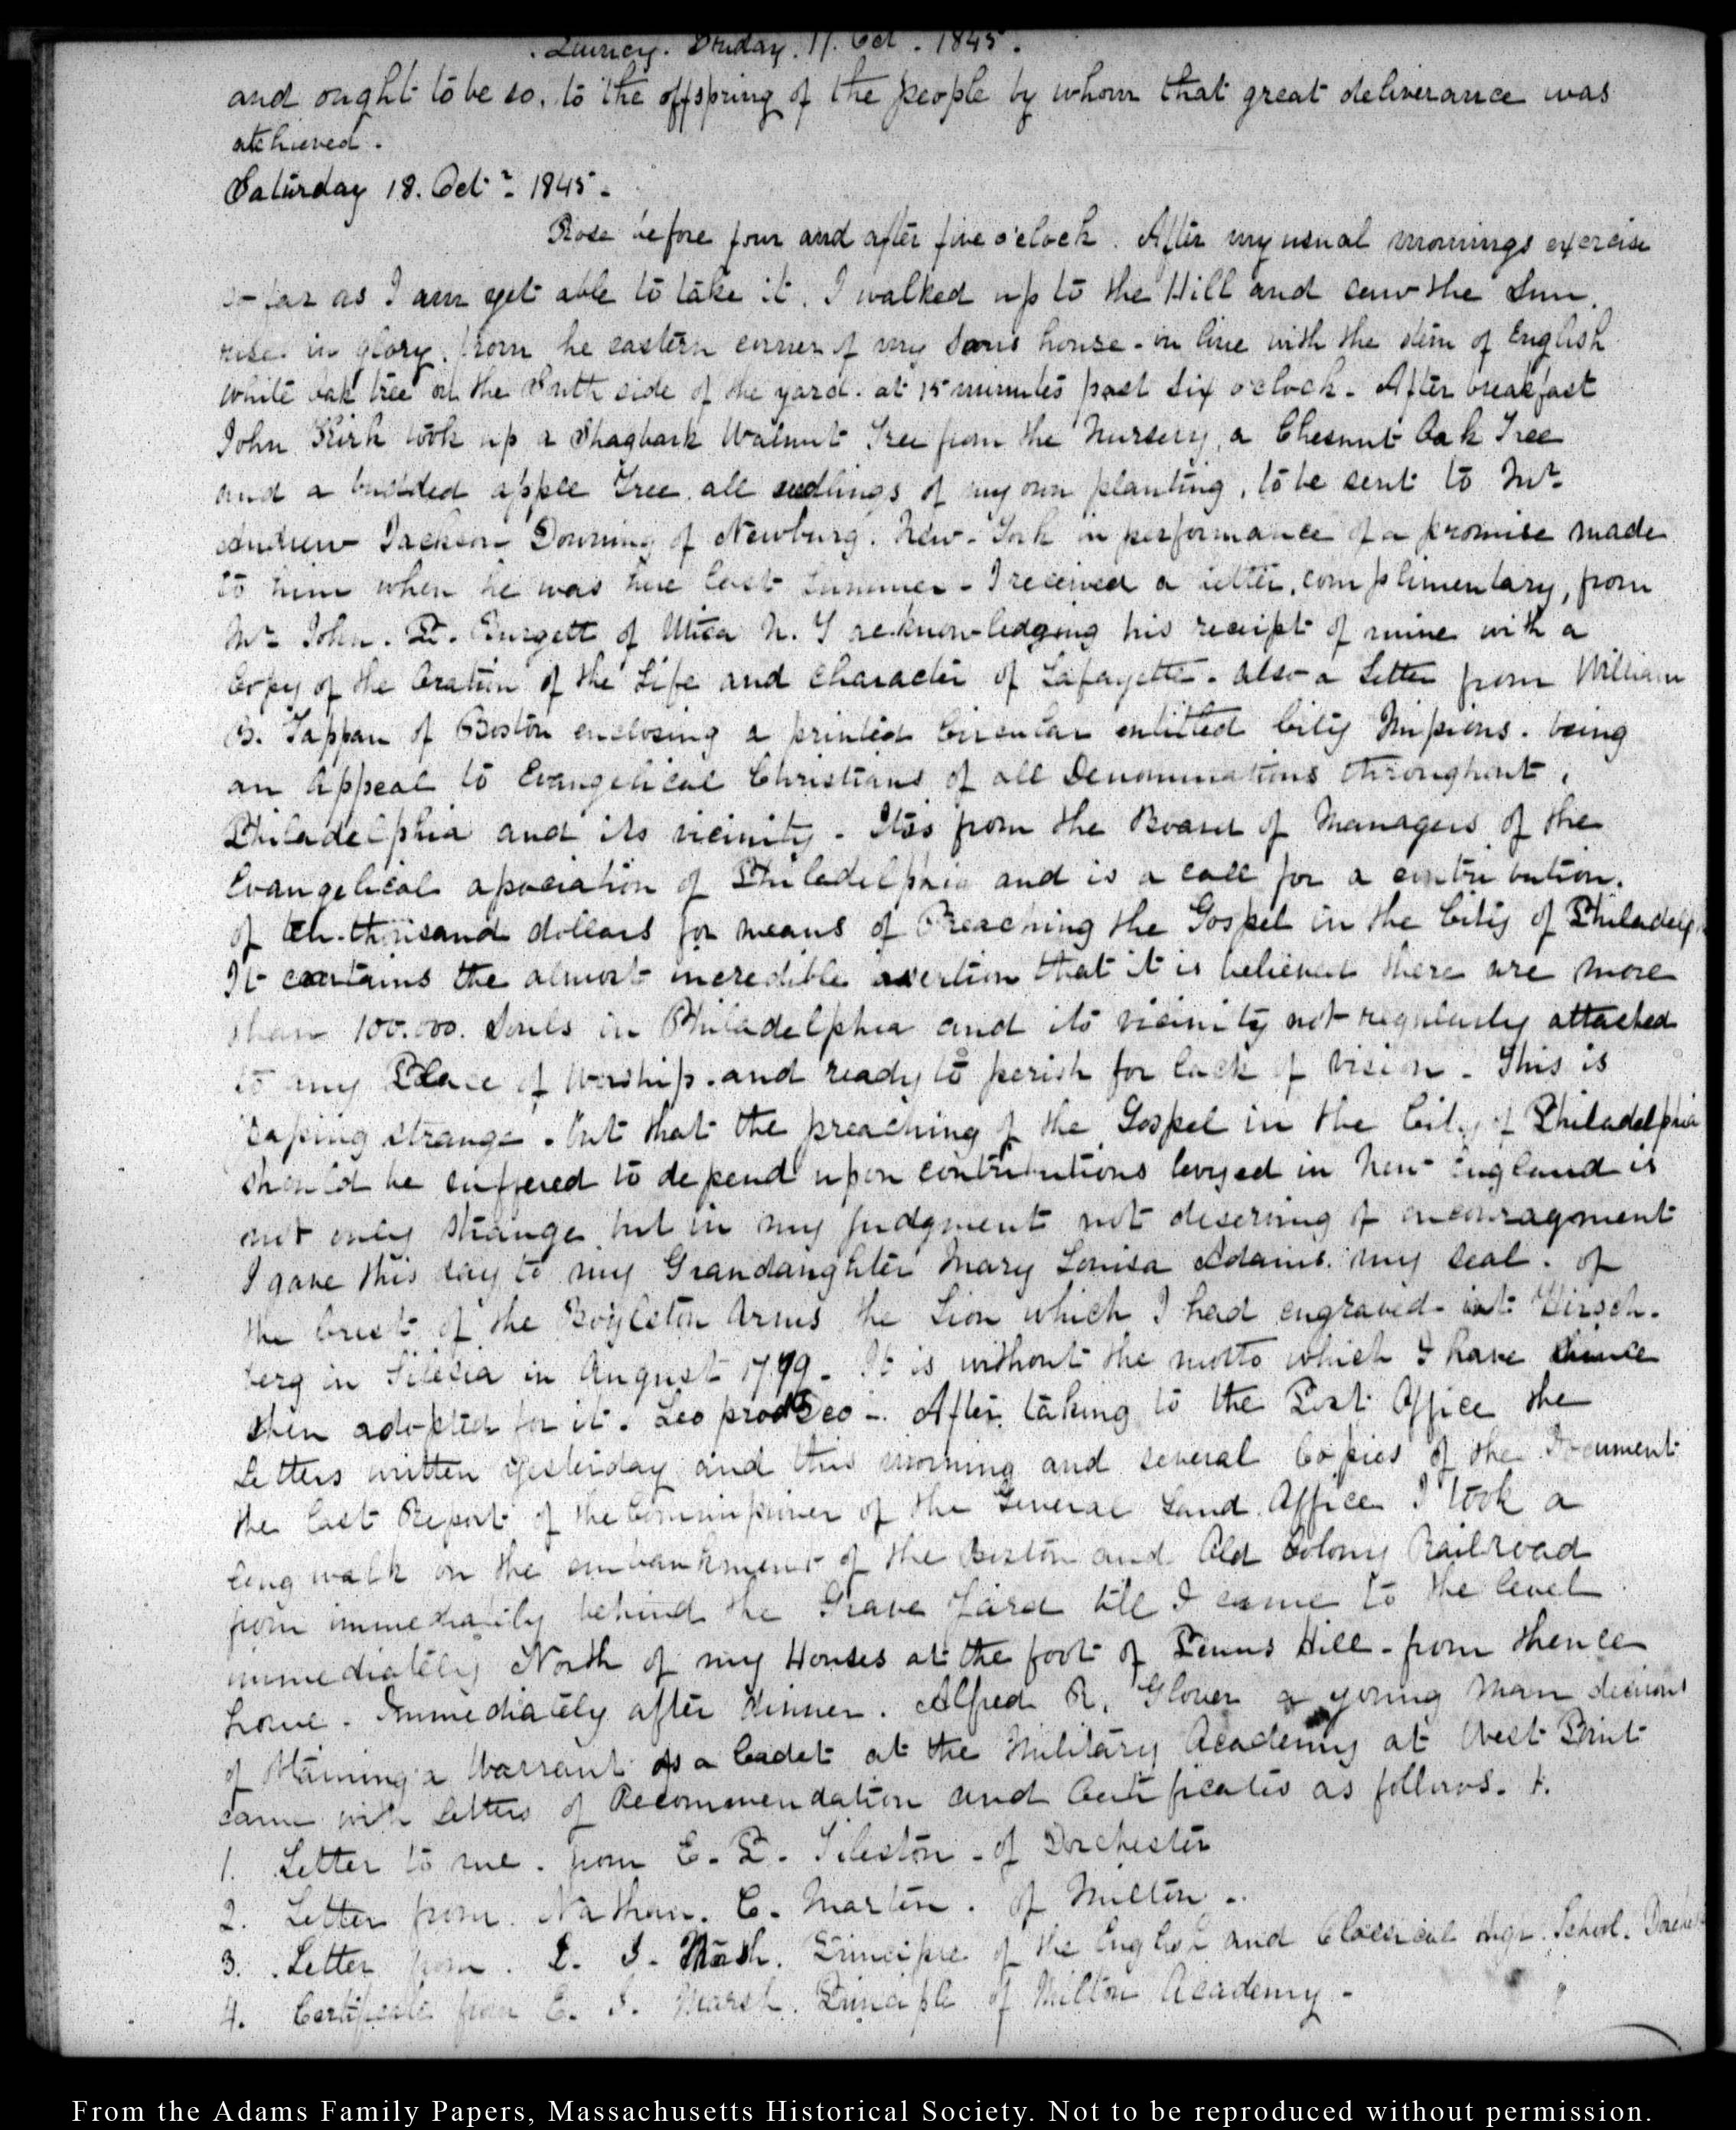 Quincy. Friday. 17. Oct. 1845.
and ought to be so, to the offspring of the people by whom that great deliverance was
atchieved.
Saturday 18. Octr. 1845.
Rose before four and after five o'clock. After my usual mornings exercise
so far as I am yet able to take it, I walked up to the Hill and saw the Sun
rise in glory, from the eastern corner of my Sons house - in line with the stem of English
white oak tree on the South side of the yard. at 15 minutes past six o'clock. After breakfast
John Kirk took up a Shagbark Walnut Tree from the Nursery, a Chesnut Oak Tree
and a budded apple Tree, all seedlings of my own planting, to be sent to Mr
Andrew Jackson Downing of Newburg. New-York in performance of a promise made
to him when he was here last Summer - I received a letter, complimentary, from
Mr John. P. of Utica N. Y acknowledging his receipt of mine with a
Copy of the Oration of the Life and Character of Lafayette. also a Letter from William
B. Tappan of Boston enclosing a printed Circular entitled City Missions. being
an Appeal to Evangelical Christians of all Denominations throughout
Philadelphia and its vicinity - It is from the Board of Managers of the
Evangelical association of Philadelphia and is a call for a contribution.
of ten thousand dollars for means of Preaching the Gospel in the City of Philadelp
It contains the almost incredible assertion that it is believed there are more
than 100.000. Souls in Philadelphia and its vicinity not regularly attached
to any Place of Worship. and ready to perish for lack of vision. This is
passing strange. but that the preaching of the Gospel in the City of Philadelphia
should be suffered to depend upon contributions levyed in New England is
not only strange but in my judgment not deserving of encouragement
I gave this day to my Grandaughter Mary Louisa Adams. my seal. of
the Crest of the Boylston Arms the Lion which I had engraved at Hirsch-
berg in Silesia in August 1799. It is without the motto which I have since
then adopted for it. After taking to the Post Office the
Letters written yesterday and this morning and several Copies of the Document
the last Report of the Commissioner of the General Land Office I took a
long walk on the embankment of the Boston and Old Colony Railroad
from immediately behind the Grave Yard till I came to the level
immediately North of my Houses at the foot of Penns Hill - from thence
home. Immediately after dinner. Alfred R. Glover a young Man desirous
of obtaining a Warrant as a Cadet at the Military Academy at West Point
came with Letters of Recommendation and Certificates as follows.
1. Letter to me. from E. P. Tileston - of Dorchester
2. Letter from. Nathan. C. Martin. of Milton -
3. Letter from. Principle of the English and Classical High. School.
4. Certificate from E. J. Marsh. Principle of Milton Academy. -
From the Adams Family Papers, Massachusetts Historical Society. Not to be reproduced without permission.